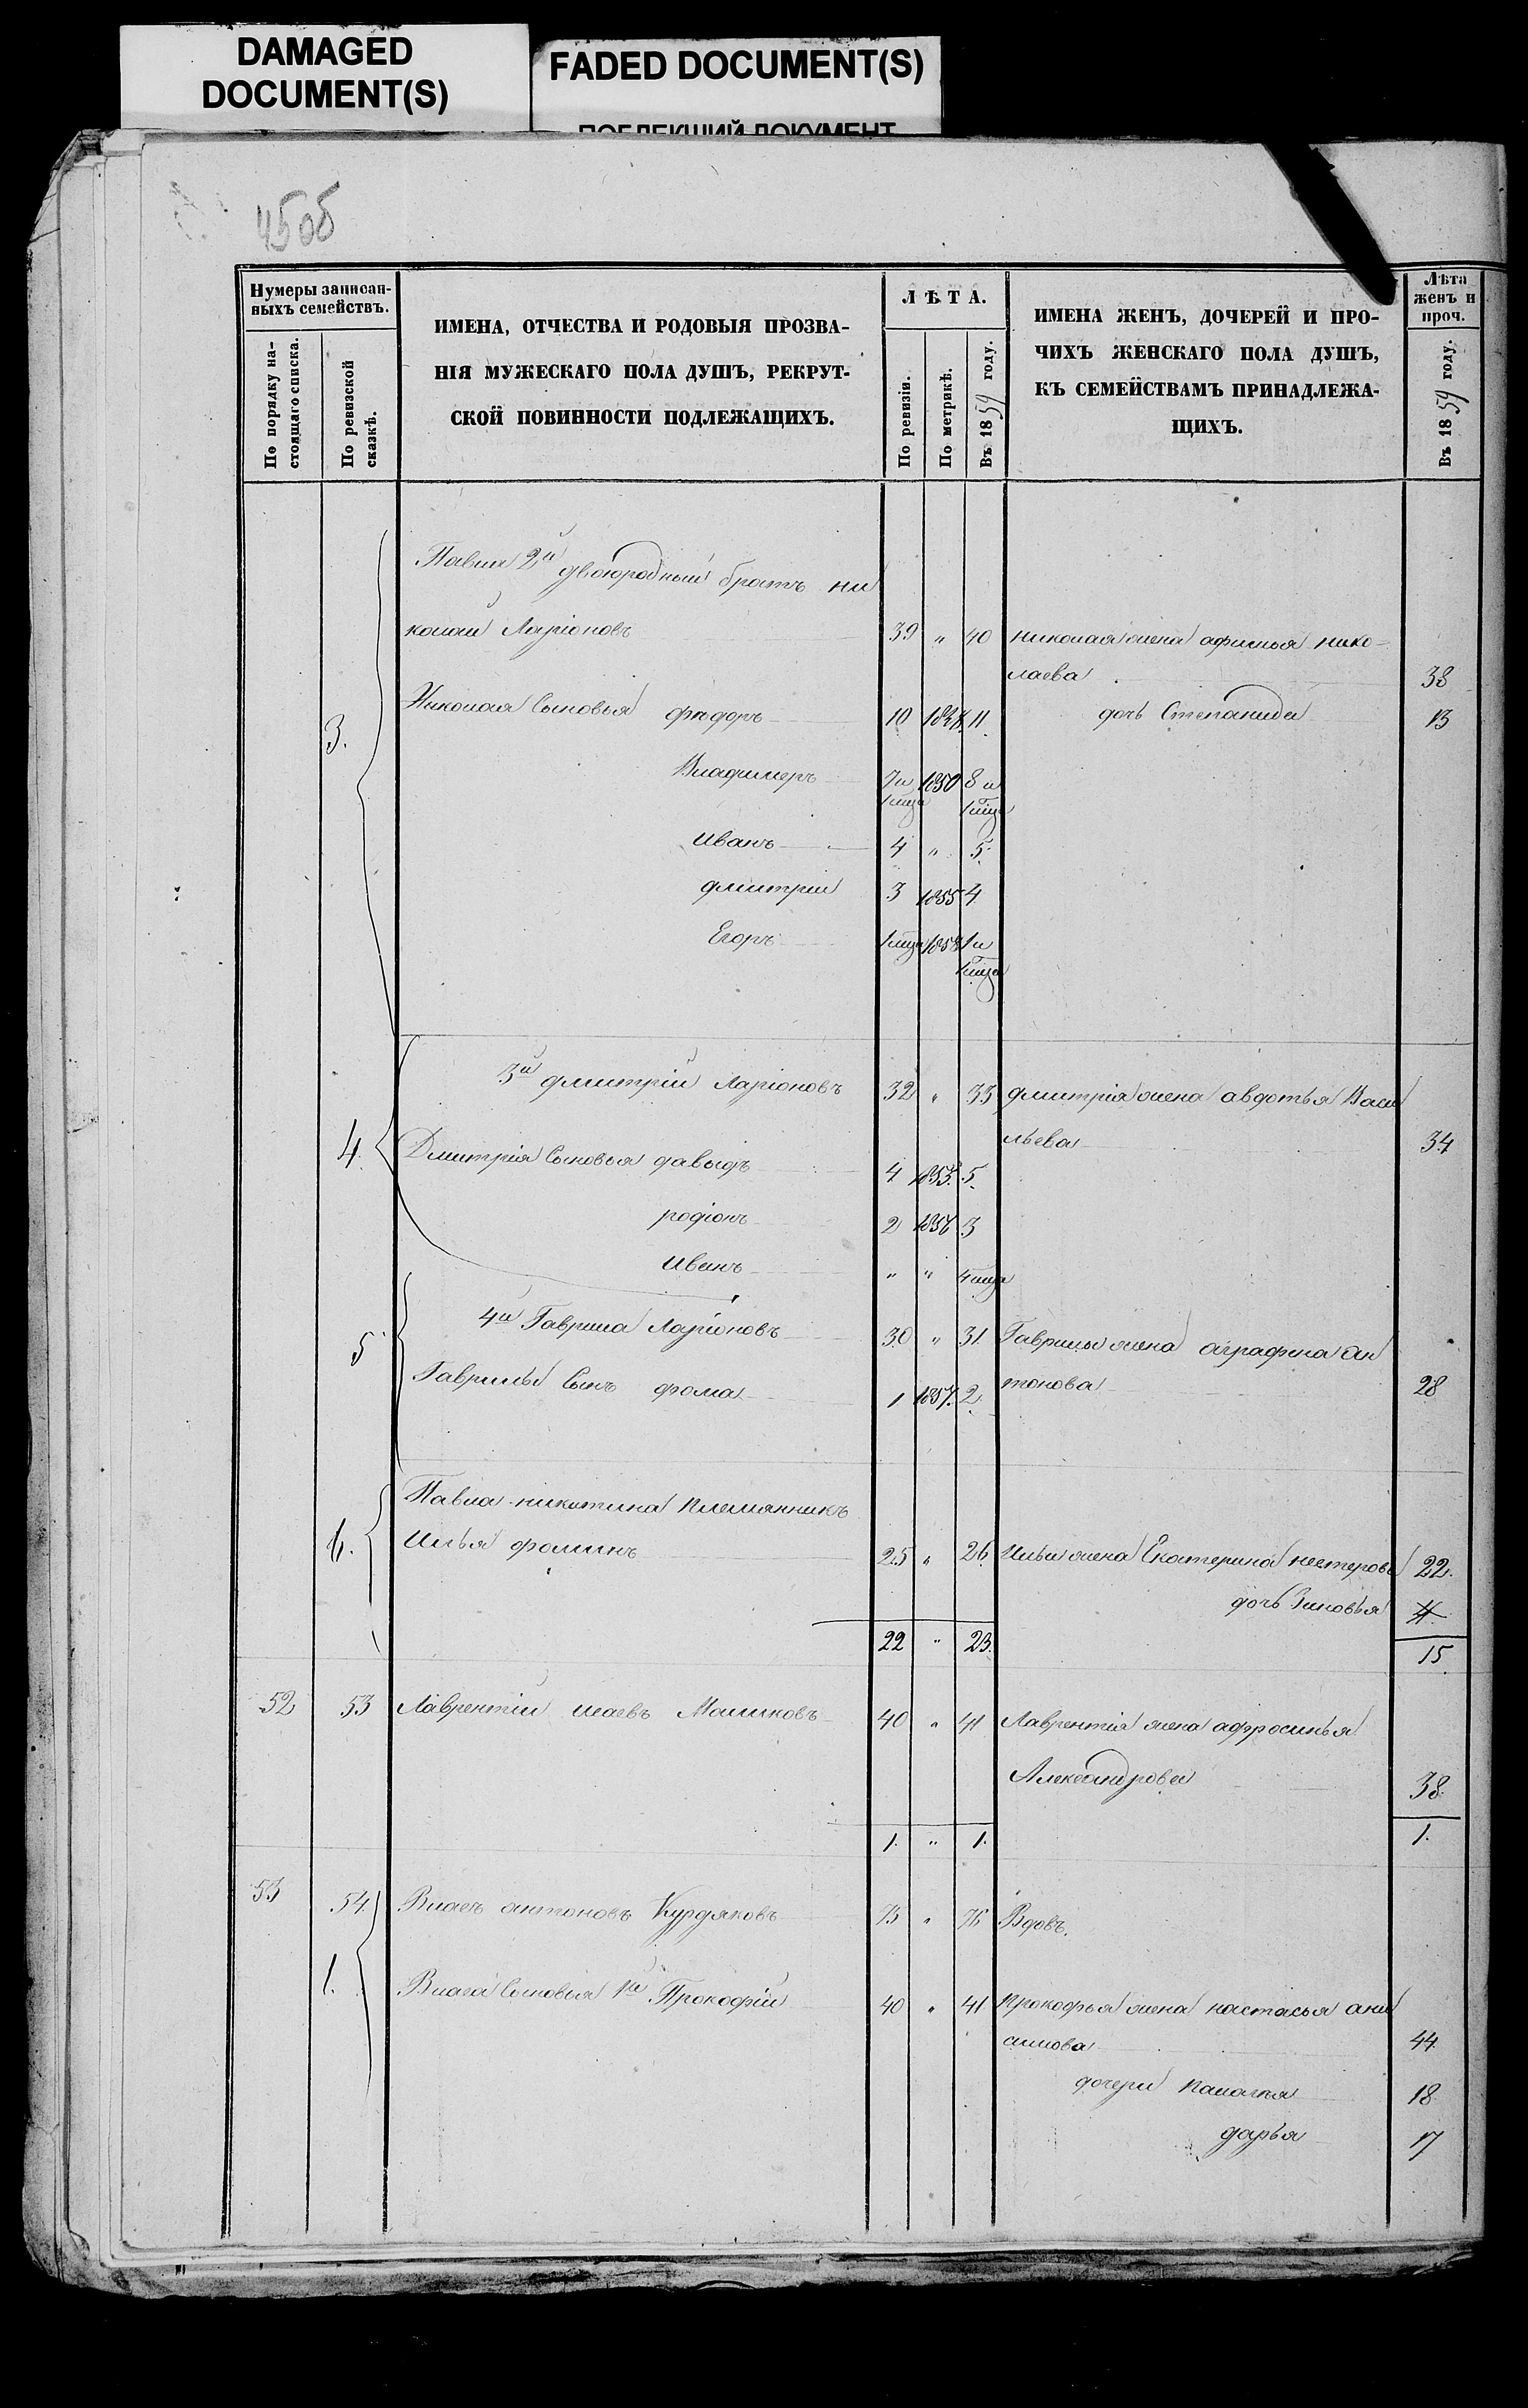 DAMAGED
DOCUMENT(S)
FADED DOCUMENT(S)
ПОБЛЕКШИЙ ДОКУМЕНТ
450б
Нумеры записан-
ныхъ семействъ.
По порядку на-
стоящаго списка.
По ревизской
сказкѣ.
ИМЕНА, ОТЧЕСТВА И РОДОВЫЯ ПРОЗВА-
НІЯ МУЖЕСКАГО ПОЛА ДУШЪ, РЕКРУТ-
СКОЙ ПОВИННОСТИ ПОДЛЕЖАЩИХЪ.
ЛѢТА.
По ревизіи.
По метрикѣ.
Въ 1859 году.
ИМЕНА ЖЕНЪ, ДОЧЕРЕЙ И ПРО-
ЧИХЪ ЖЕНСКАГО ПОЛА ДУШЪ,
КЪ СЕМЕЙСТВАМЪ ПРИНАДЛЕЖА-
ЩИХЪ.
Лѣта
женъ и
проч.
Въ 1859 году.
Павла 2й двоюродный братъ ни
колай Ларіоновъ 39 " 40 николая жена афимья нико-
лаева 38
3. Николая Сыновья фѣдоръ 10 11 дочь Степанида 13
Владимеръ 7и 1850 8 и
1мца 1мца
Иванъ 4 " 5.
дмитрій 3 1855 4
Егоръ 1мца 1858 1и
1мца
3й дмитрій Ларіоновъ 32 " 33 дмитрія жена авдотья Васи
льева 34
4. Дмитрія Сыновья давыдъ 4 1855. 5.
родіонъ 2 1856 3
Иванъ " " 4мца
4й Гаврила Ларіоновъ 30 " 31. Гаврилы жена аграфена ан
5 тонова 28
Гаврилы Сынъ фома 1 1857. 2.
Павла никитина племянникъ
6. Илья фоминъ 25 " 26. Ильи жена Екатерина нестерова 22.
дочь Зиновья 4.
22 " 23. 15
52 53 Лаврентій исаевъ Машковъ 40 " 41 Лаврентія жена афросинья
Александрова 38.
1. " 1. 1.
53 54. Власъ антоновъ Курдяковъ 75 " 76 Вдовъ.
1. Власа Сыновья 1й Прокофій 40 " 41 прокофья жена настасья ани
симова 44
дочери палагья 18
дарья 17